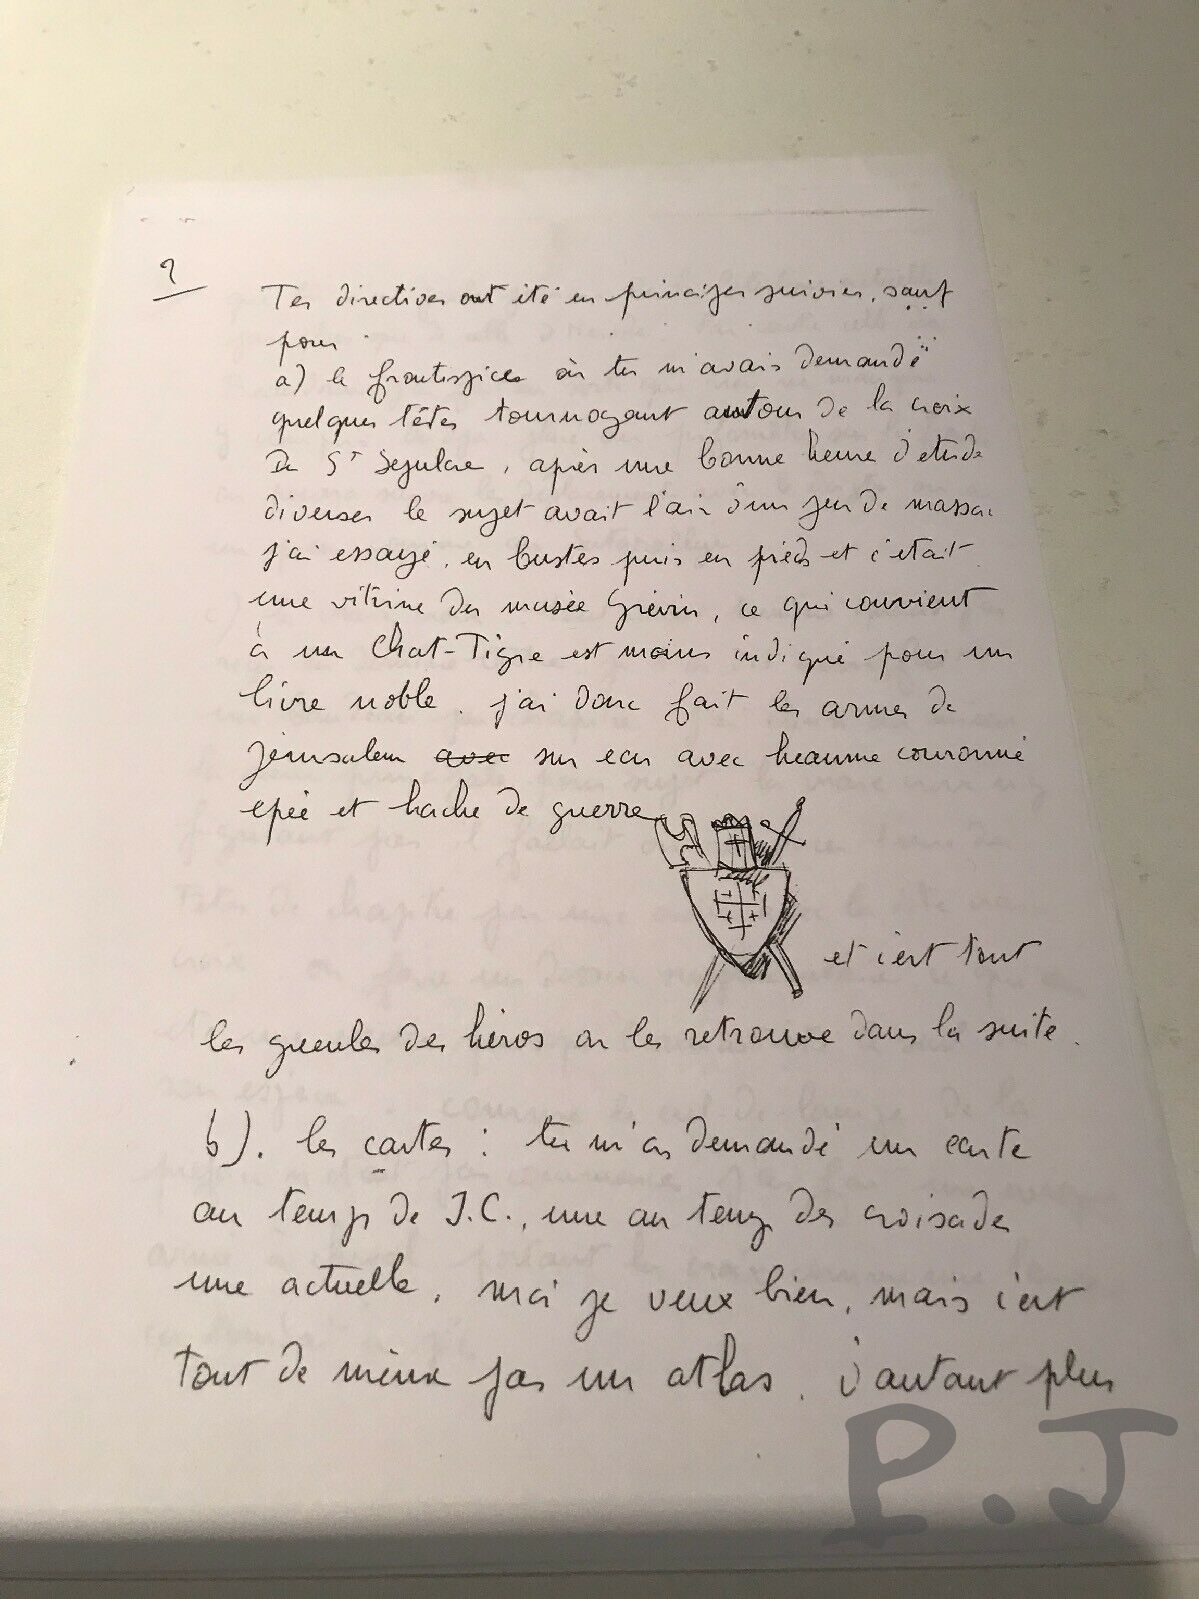 2
Tes directives ont été en principes suivies, sauf
pour
a) le frontispice où tu m'avais demandé
quelques têtes tournoyant autour de la croix
du St Sepulcre, après une bonne heure d'etude
diverses le sujet avait l'air d'un jeu de massac
j'ai essayé, en bustes puis en pieds et c'était
une vitrine du musée Grévin, ce qui convient
à un Chat-Tigre est moins indiqué pour un
livre noble. j'ai donc fait les armes de
Jérusalem avec sur ecu avec heaume couronné
epée et hache de guerre
et c'est tout
les gueules des héros on les retrouve dans la suite.
b). les cartes : tu m'as demandé un carte
au temps de J.C., une au temps des croisades
une actuelle, moi je veux bien, mais c'est
tout de même pas un atlas. d'autant plus
P.J